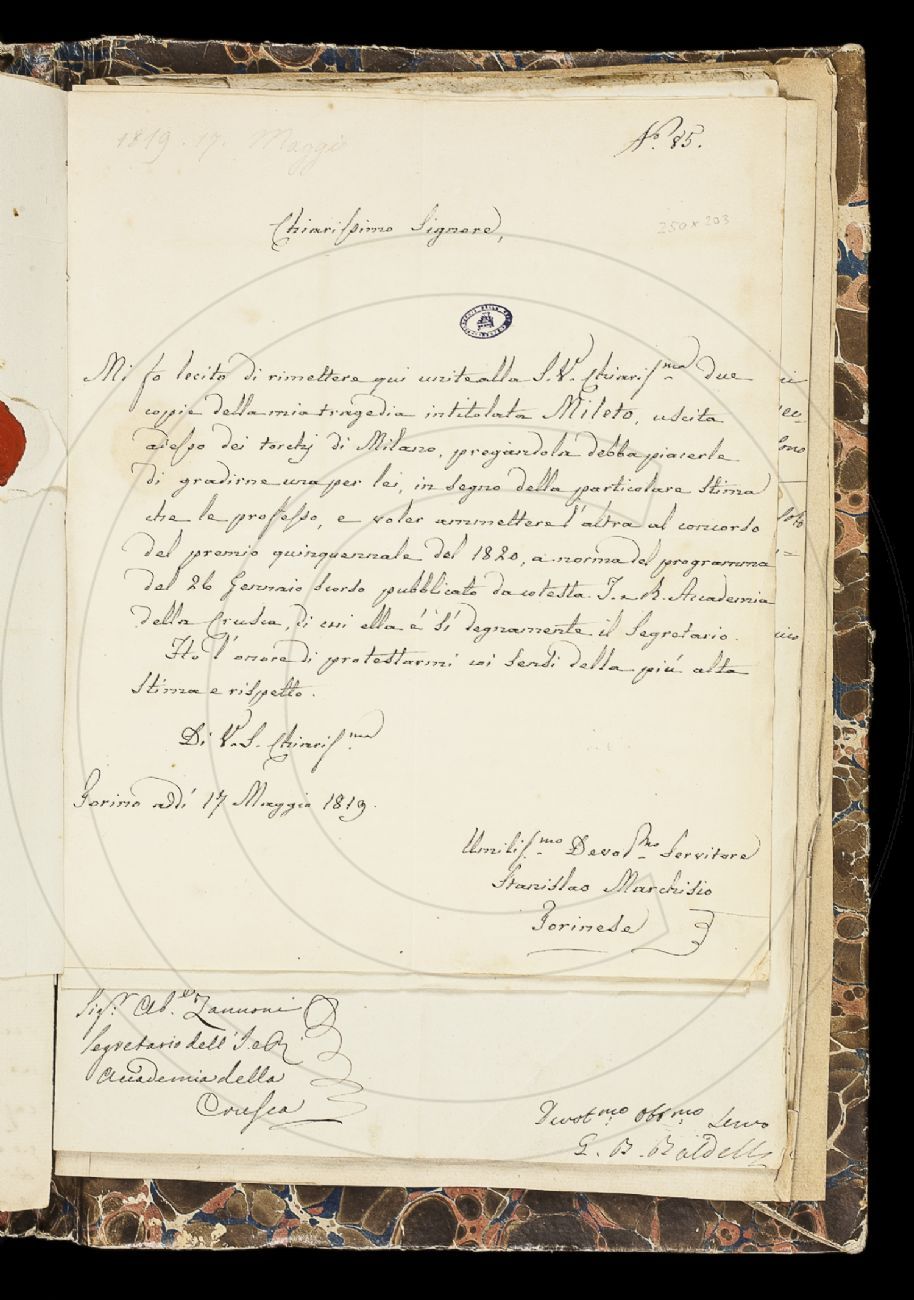 1819. 17. Maggio
N.º 85.
Chiarissimo Signore,
250 x 203
Mi fo lecito di rimettere qui unite alla S. V. Chiariss.ma due
copie della mia tragedia intitolata Mileto, uscita
adesso dei torchj di Milano, pregandola debba piacerle
di gradirne una per lei, in segno della particolare stima
che le professo, e voler ammettere l'altra al concorso
del premio quinquennale del 1820, a norma del programma
del 26 Gennaio scorso pubblicato da cotesta I. e R. Accademia
della Crusca, di cui ella é sí degnamente il Segretario.
Ho l'onore di protestarmi coi sensi della piú alta
stima e rispetto.
Di V. S. Chiariss.ma
Torino addí 17 Maggio 1819.
Umiliss.mo Devot.mo Servitore
Stanislao Marchisio
Torinese
Sig.r Ab.e Zannoni
Segretario dell'I. e R.
Accademia della
Crusca
Devot.mo obb.mo Servo
G. B. Baldelli